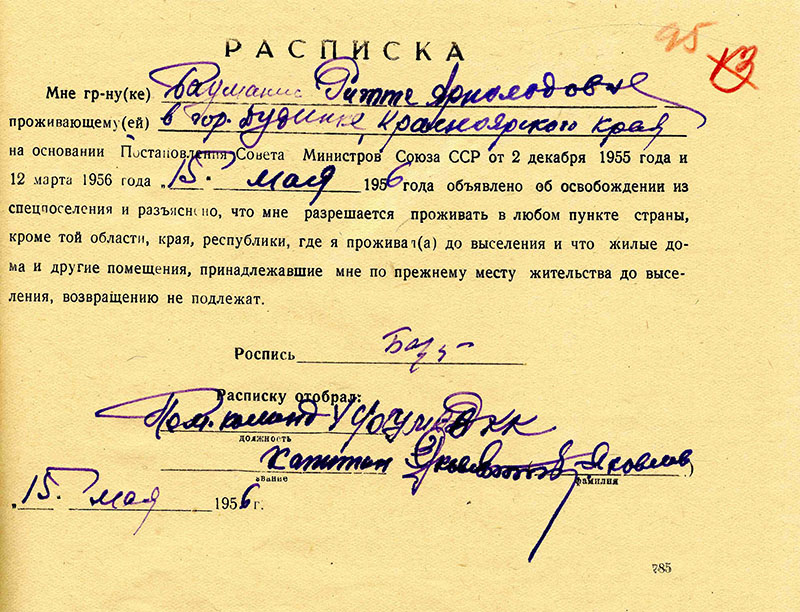 95
РАСПИСКА
Мне гр-ну(ке) Баумание Ритте Арнольдовне
проживающему(ей) в гор. Дудинке, Красноярского края
на основании Постановления Совета Министров Союза ССР от 2 декабря 1955 года и
12 марта 1956 года „15." мая 1956 года объявлено об освобождении из
спецпоселения и разъяснено, что мне разрешается проживать в любом пункте страны,
кроме той области, края, республики, где я проживал(а) до выселения и что жилые до-
ма и другие помещения, принадлежавшие мне по прежнему месту жительства до высе-
ления, возвращению не подлежат.
Роспись
Расписку отобрал:
Пом. коменд КК
должность
Капитан Яковлев
звание фамилия
„15." мая 1956 г.
785